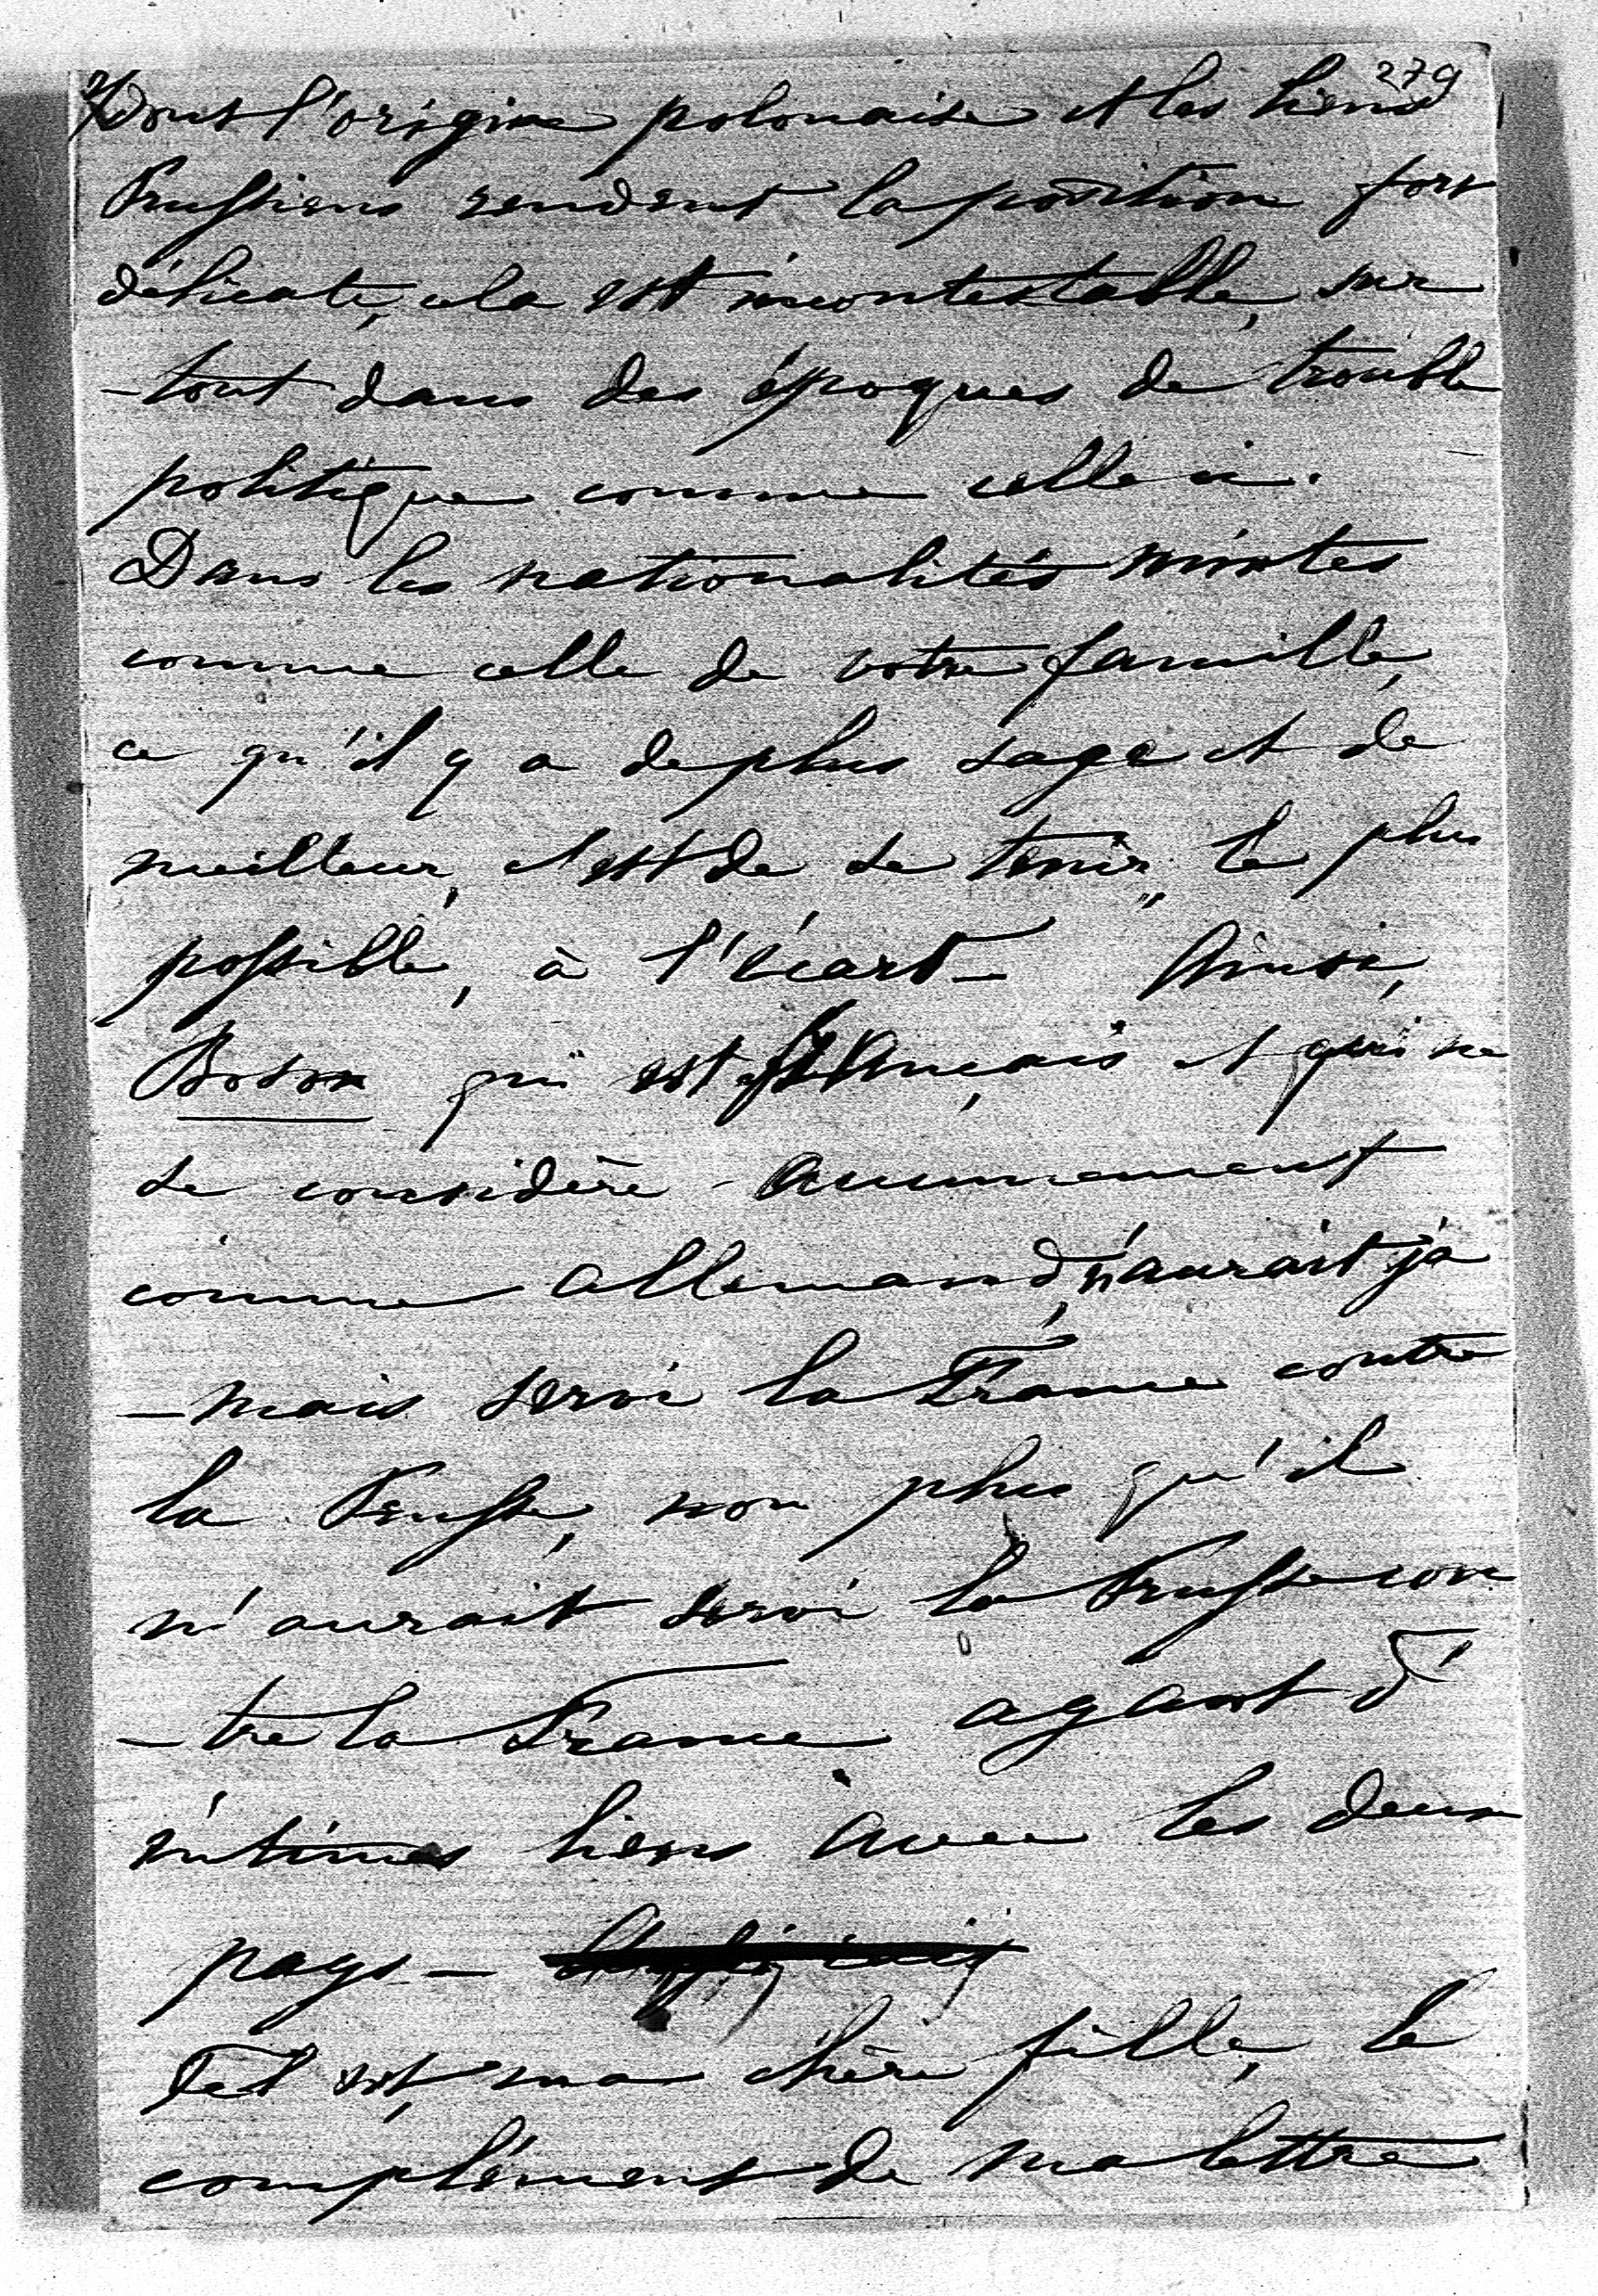 279
2/ Dont l'origine polonaise et les liens
Prussiens rendent la position fort
délicate, cela est incontestable, sur
-tout dans des époques de trouble
politique comme celle ci.
Dans les nationalités mixtes
comme celle de votre famille,
ce qu'il y a de plus sage et de
meilleur, c'est de se tenir, le plus
possible, à l'écart - Ainsi,
Boson qui est français et qui ne
se considère aucunement
comme allemand, n'aurait ja
-mais servi la France contre
la Prusse, non plus qu'il
n'aurait servi la Prusse con
-tre la France ayant d'
intimes liens avec les deux
pays -
Tel est, ma chère fille, le
complément de ma lettre